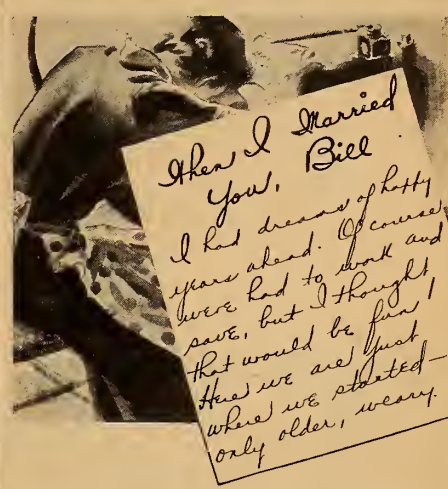 When I Married
You, Bill
I had dreams of happy
years ahead. Of course
weve had to work and
save, but I thought
that would be fun!
Here we are just
where we started—
only older, weary.